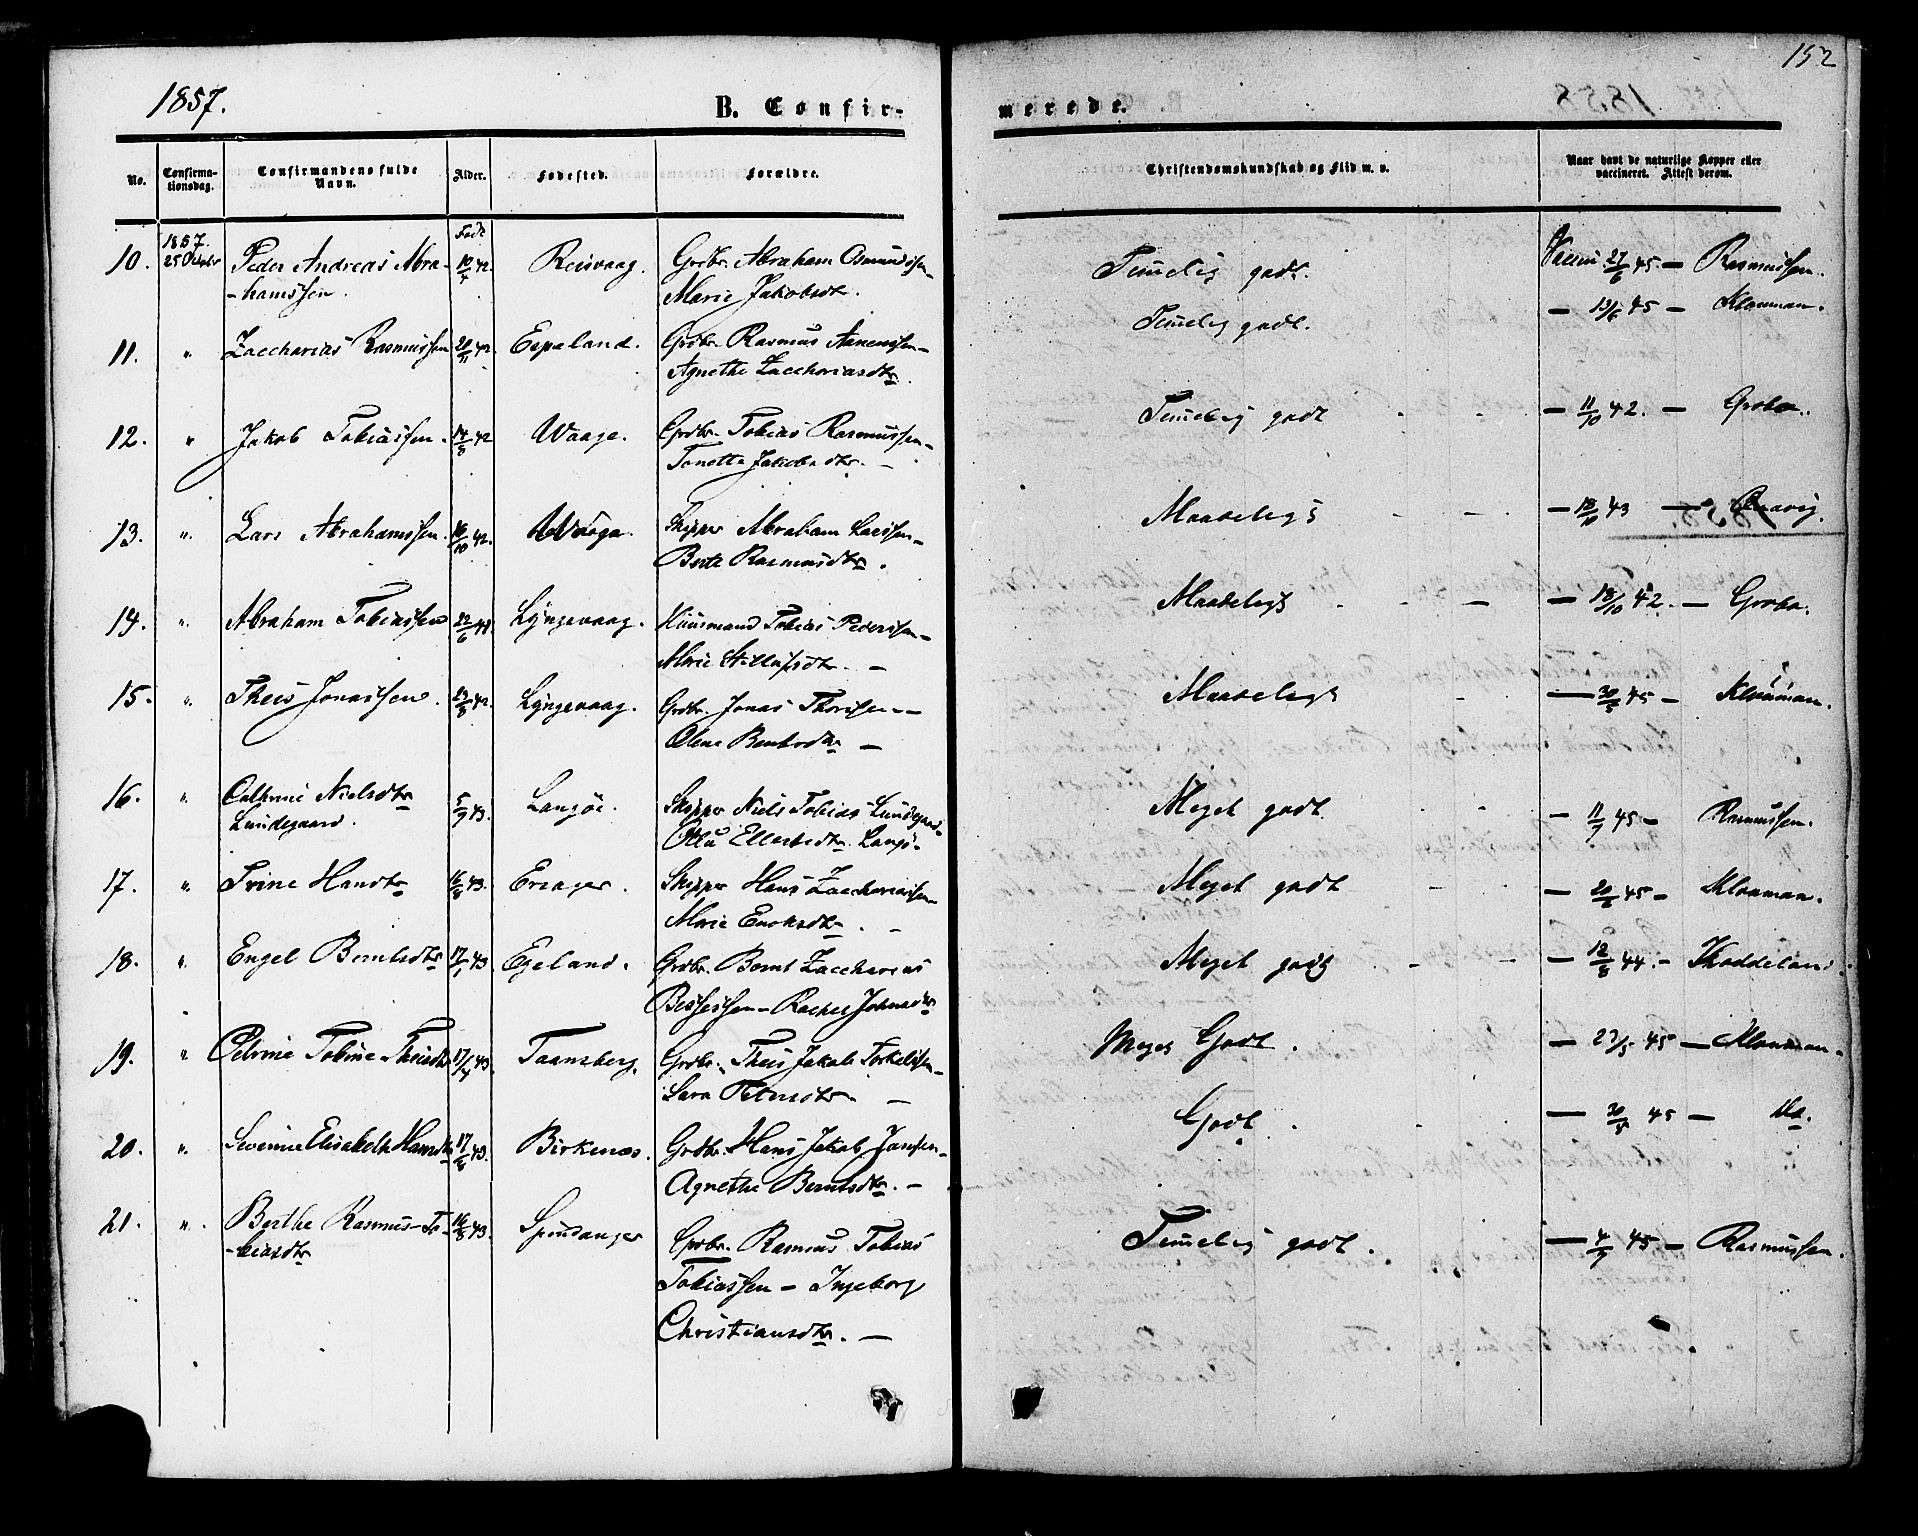 152
1857.
B. Confir-
merede.
No.
Confirma-
tionsdag.
Confirmandens fulde
Navn.
Alder.
Fødested.
Forældre.
Christendomskundskab og Flid m. v.
Naar havt de naturlige Kopper eller
vaccineret. Attest derom.
Født
10. 1857. 25 Octobr Peder Andreas Abra-
-hamssen. 10/4 42. Reisvaag. Grdbr. Abraham Osmundssen-
Marie Jakobsdtr. Temelig godt. Vaccin 27/6 45. - Rasmussen.
11. " Zaccharias Rasmussen 20/11 42. Espeland. Grdbr. Rasmus Aanenssen-
Agnethe Zacchariasdtr. Temelig godt. - 13/6 45 - Klouman.
12. " Jakob Tobiassen. 14/8 42 Waage. Grdbr. Tobias Rasmussen-
Tonette Jakobsdtr. - Temelig godt - 11/10 42. - Grobo.
13. " Lars Abrahamssen. 16/10 42. Waage. Skipper Abraham Larssen-
Berte Rasmusdtr. Maadeligt - 18/10 43 -
14. " Abraham Tobiassen 22/6 41. Lyngevaag. Huusmand Tobias Pederssen-
Marie dtr. - Maadeligt - 18/10 42. - Grobo.
15. " Theis Jonassen. 23/8 42. Lyngevaag. Grdbr. Jonas Thorssen-
Olene Berntsdtr - Maadeligt - 30/5 45 - Klouman.
16. " Cathrine Nielsdtr
Lundegaard. 5/9 43. Langöe. Skipper Niels Tobias Lundegaard-
Ellertsdtr. Langö. Meget godt. - 11/7 45 - Rasmussen.
17. " Trine Hansdtr 16/8 43. Eraager. Skipper Hans Zacchariassen-
Marie Enoksdtr. - Meget godt - 20/6 45 - Klouman.
18. " Engel Berntsdtr 17/1 43 Egeland. Grdbr. Bernt Zaccharias
Bessesen - Rachel Johnsdtr Meget godt - 12/8 44. - Skoddeland.
19. " Petrine Tobine Theisdtr 17/4 43. Taanesberg. Grdbr. Theis Jakob Torkelssen-
Sara Petersdtr. - Meget Godt. - 23/5 45 - Klouman.
20. " Severine Elisabeth Hansdtr 17/8 43. Birkenæs. Grdbr. Hans Jakob Janssen-
Agnethe Berntsdtr. - Godt. - 30/5 45 - Do.
21. " Berthe Rasmus-To-
-biasdtr 16/8 43. Spindanger Grdbr. Rasmus Tobias
Tobiassen - Ingeborg
Christiansdtr. - Temelig godt. - 4/7 45 - Rasmussen.